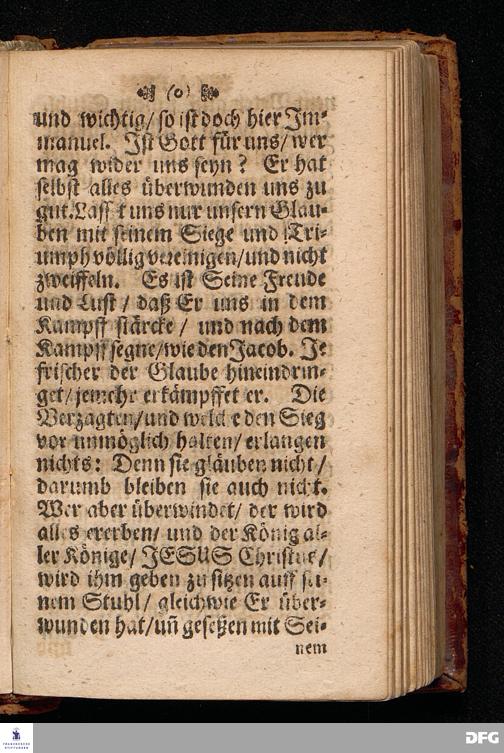 (o)
und wichtig/ so ist doch hier Im-
manuel. Ist Gott für uns/ wer
mag wider uns seyn? Er hat
selbst alles überwunden uns zu
gut. Lasst uns nur unsern Glau-
ben mit seinem Siege und Tri-
umph völlig vereinigen/ und nicht
zweiffeln. Es ist Seine Freude
und Lust/ daß Er uns in dem
Kampff stärcke/ und nach dem
Kampff segne/ wie den Jacob. Je
frischer der Glaube hineindrin-
get/ jemehr erkämpffet er. Die
Verzagten/ und welche den Sieg
vor unmöglich halten/ erlangen
nichts: Denn sie gläuben nicht/
darumb bleiben sie auch nicht.
Wer aber überwindet/ der wird
alles ererben/ und der König al-
ler Könige/ JESUS Christus/
wird ihm geben zu sitzen auff sei-
nem Stuhl/ gleichwie Er über-
wunden hat/ uñ gesessen mit Sei-
nem
FRANCKESCHE
STIFTUNGEN
DFG